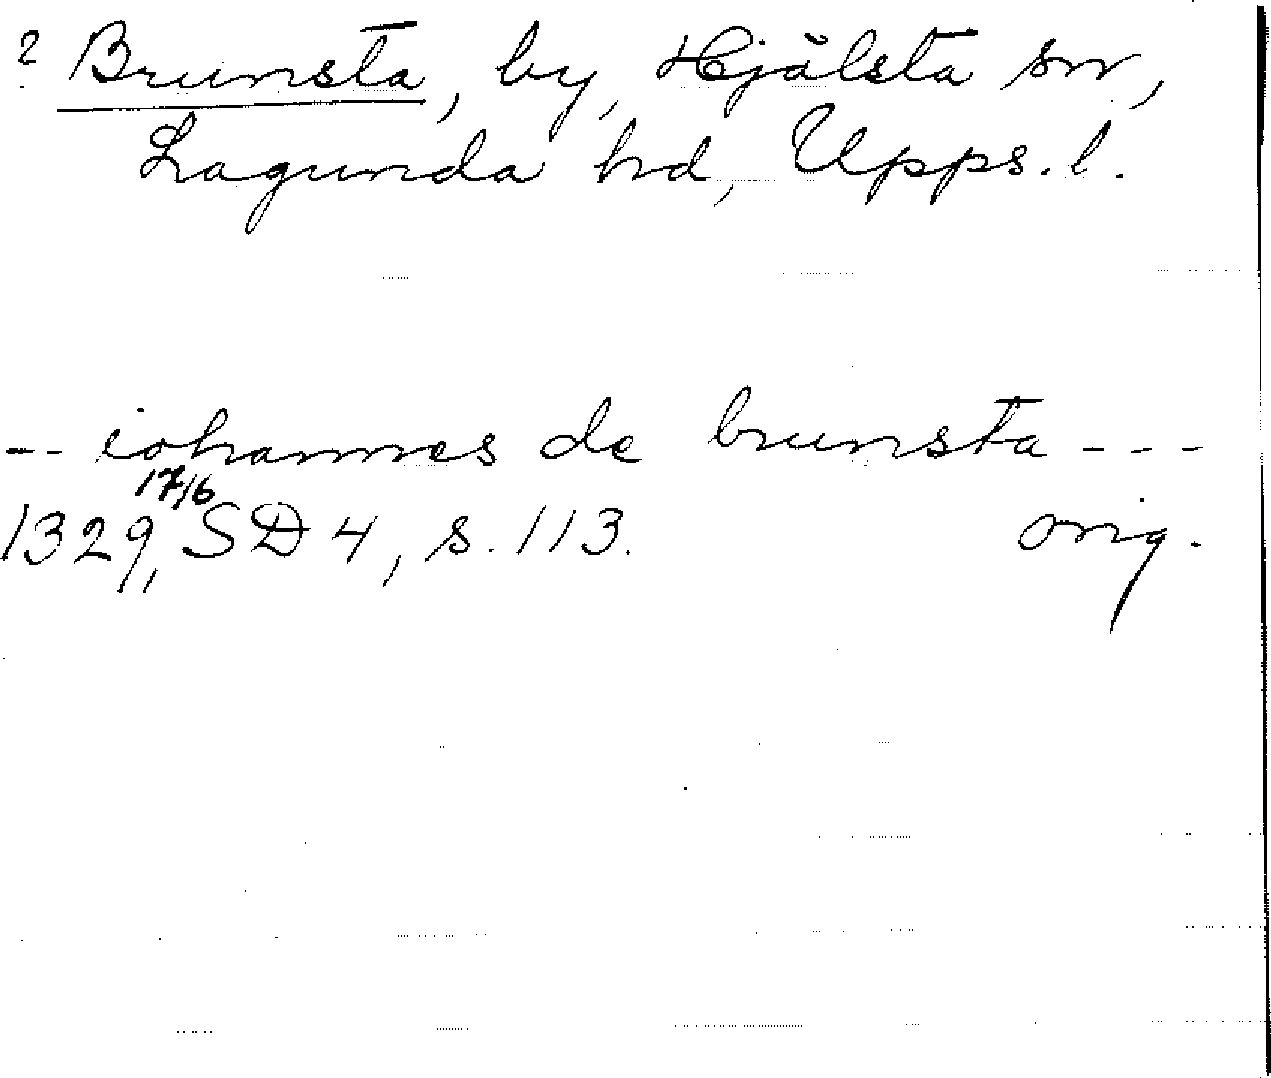 ? Brunsta, by, Hjälsta sn,
Lagunda hd, Upps. l.
-- iohannes de brunsta ---
17/6
1329, SD 4, s. 113. orig.